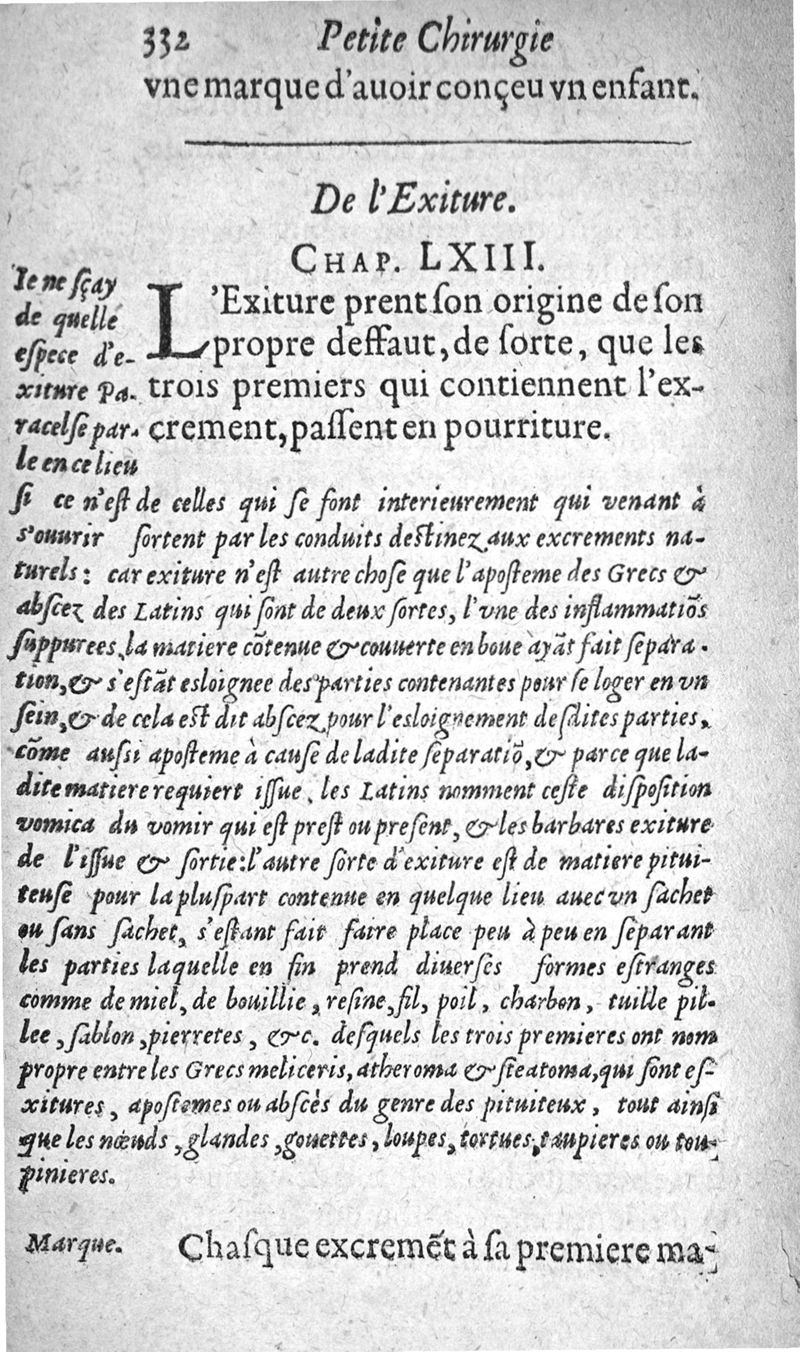 332 Petite Chirurgie
vne marque d'auoir conçeu vn enfant.
De l'Exiture.
CHAP. LXIII.
L'Exiture prent ſon origine de ſon
propre deffaut, de ſorte, que les
trois premiers qui contiennent l'ex-
crement, paſſent en pourriture.
Ie ne ſçay
de quelle
eſpece d'e-
xiture Pa-
racelſe par-
le en ce lieu
ſi ce n'eſt de celles qui ſe font interieurement qui venant à
s'ouurir ſortent par les conduits deſtinez aux excrements na-
turels: car exiture n'eſt autre choſe que l'apoſteme des Grecs &
abſcez des Latins qui ſont de deux ſortes, l'vne des inflammatiõs
ſuppurees, la matiere cõtenue & couuerte en boue ayãt fait ſepara-
tion, & s'eſtãt esloignee des parties contenantes pour ſe loger en vn
ſein, & de cela eſt dit abſcez, pour l'esloignement deſdites parties,
cõme auſſi apoſteme à cauſe de ladite ſeparatiõ, & parce que la-
dite matiere requiert iſſue, les Latins nomment ceſte diſpoſition
vomica du vomir qui eſt preſt ou preſent, & les barbares exiture
de l'iſſue & ſortie: l'autre ſorte d'exiture eſt de matiere pitui-
teuſe pour la pluſpart contenue en quelque lieu auec vn ſachet
ou ſans ſachet, s'eſtant fait faire place peu à peu en ſeparant
les parties laquelle en fin prend diuerſes formes eſtranges
comme de miel, de bouillie, reſine, fil, poil, charbon, tuille pil-
lee, ſablon, pierretes, &c. deſquels les trois premieres ont nom
propre entre les Grecs meliceris, atheroma & ſteatoma, qui ſont eſ-
xitures, apoſtemes ou abſcès du genre des pituiteux, tout ainſi
que les nœuds, glandes, gouettes, loupes, tortues, taupieres ou tou-
pinieres.
Marque. Chaſque excremẽt à ſa premiere ma-